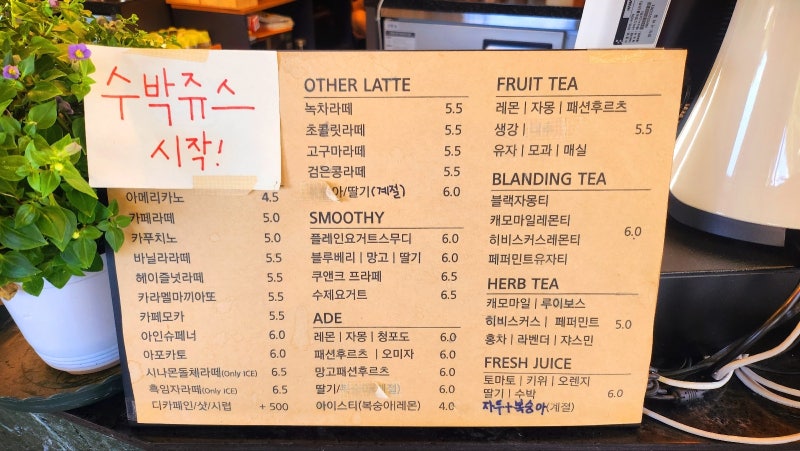 수박쥬스
시작!
아메리카노 4.5
카페라떼 5.0
카푸치노 5.0
바닐라라떼 5.5
헤이즐넛라떼 5.5
카라멜마끼아또 5.5
카페모카 5.5
아인슈페너 6.0
아포카토 6.0
시나몬돌체라떼(Only ICE) 6.5
흑임자라떼(Only ICE) 6.5
디카페인/샷/시럽 +500
OTHER LATTE
녹차라떼 5.5
초콜릿라떼 5.5
고구마라떼 5.5
검은콩라떼 5.5
아/딸기(계절) 6.0
SMOOTHY
플레인요거트스무디 6.0
블루베리 | 망고 | 딸기 6.0
쿠앤크 프라페 6.5
수제요거트 6.5
ADE
레몬 | 자몽 | 청포도 6.0
패션후르츠 | 오미자 6.0
망고패션후르츠 6.0
딸기/ 6.0
아이스티(복숭아레몬) 4.0
FRUIT TEA
레몬 | 자몽 | 패션후르츠
생강 | 5.5
유자 | 모과 | 매실
BLANDING TEA
블랙자몽티
캐모마일레몬티
히비스커스레몬티 6.0
페퍼민트유자티
HERB TEA
캐모마일 | 루이보스
히비스커스 | 페퍼민트 5.0
홍차 | 라벤더 | 쟈스민
FRESH JUICE
토마토 | 키위 | 오렌지
딸기 | 수박 6.0
자두+복숭아(계절)